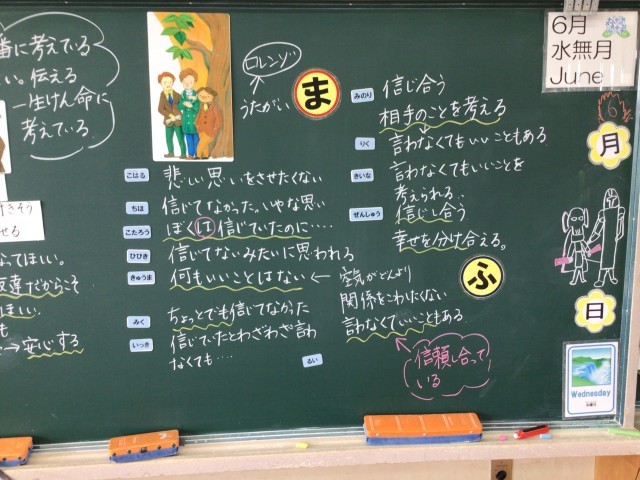 番に考えている
い。伝える
一生けん命に
考えている
コレンゾ
うたがい
ま
みのり
信じ合う
相手のことを考える
りく
言わなくてもいいこともある
きいな
言わなくてもいいことを
考えられる‥
ぜんしゅう
信じし合う
幸せを分け合える。
こはる
悲しい思いをさせたくない
ちほ
信じてなかった。いやな思い
こたろう
ぼくは信じていたのに‥‥
ひびき
信じてないみたいに思われる
きゅうま
何もいいことはない ←
空気がどんより
関係をこわしたくない
言わなくていいこともある
みく
ちょっとでも信じてなかった
いっき
信じていたとわざわざ言わ
なくても‥‥
るい
ふ
信頼し合って
いる
なってほしい。
友達だからこそ
ほしい。
も
→安心する
6月
水無月
June
6
月
日
Wednesday
水曜日